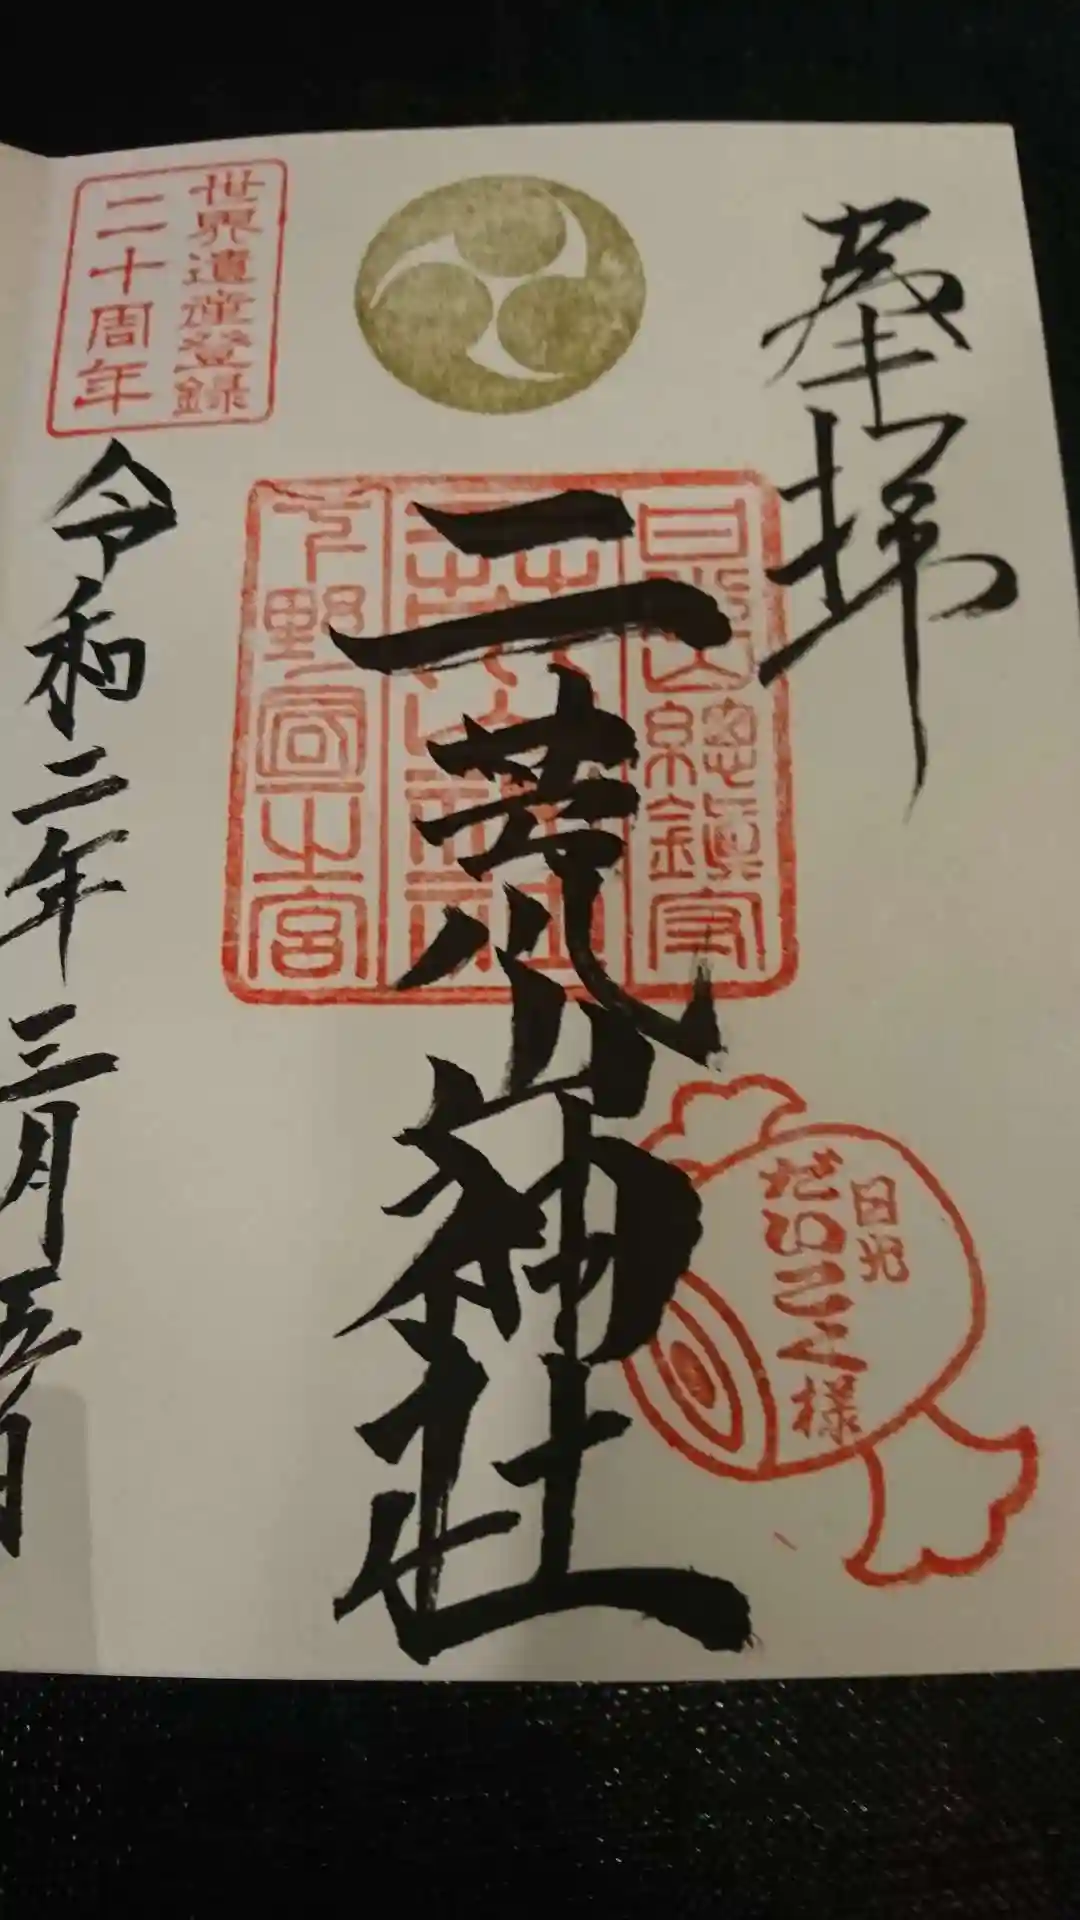 奉拝
日光
だいこく様
日光山総鎮守
二荒山神社
下野国一之宮
二荒山神社
世界遺産登録
二十周年
令和二年三月五日